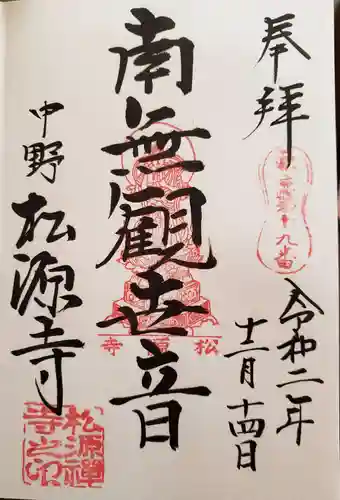 奉拝
令和二年
十二月十四日
南無観世音
松源寺
中野
松源寺
松源禅
寺之印